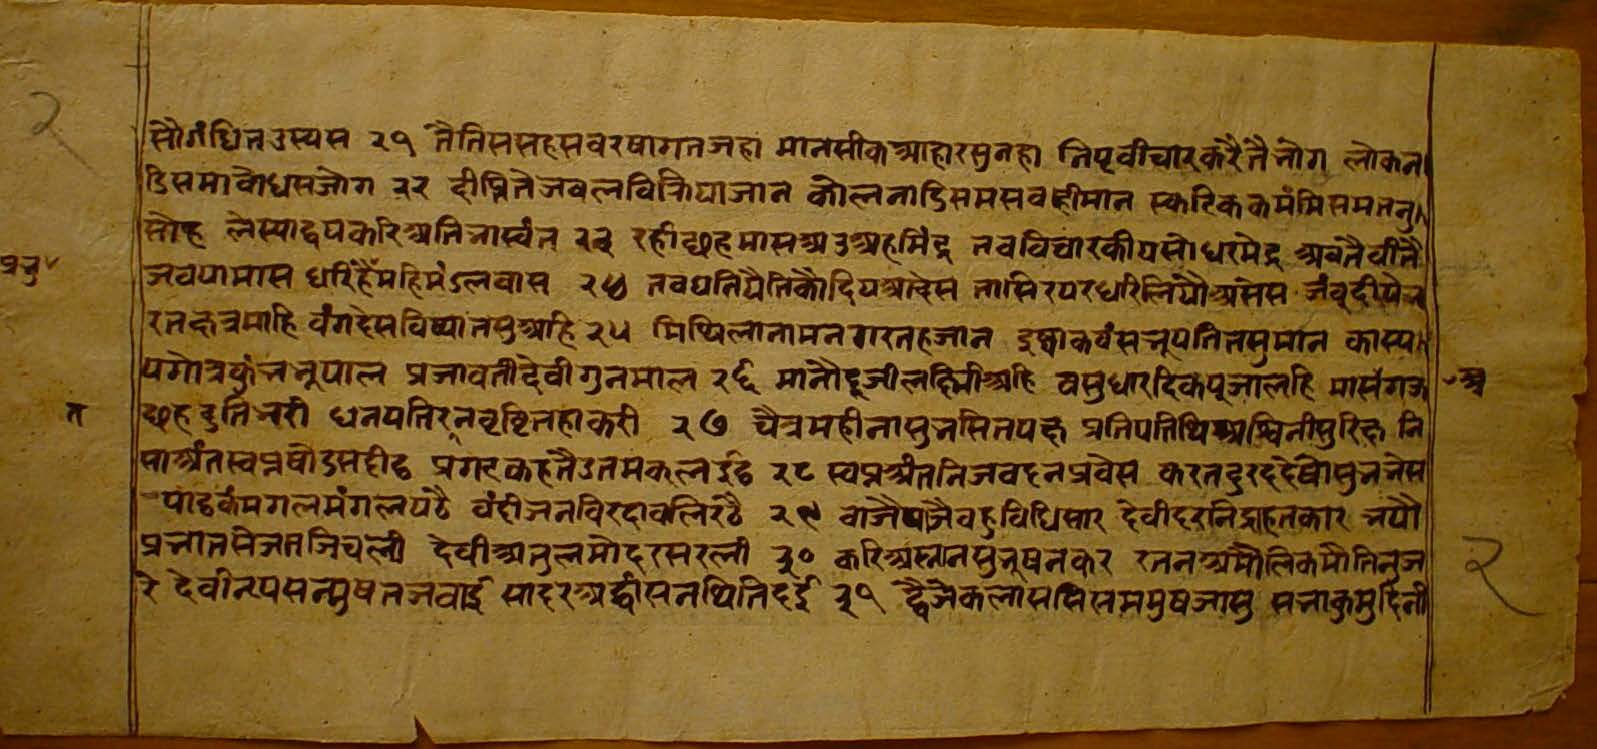 २
सौगंधितउस्यस २१ तैतिससहसवरषागतजहा मानसीकआहारसुनहा निपृवीचारकरैतैभोग लोकन
डिसमाबोधसजोग २२ दीप्तितेजबलविक्रियाजान कोलनाडिसमसबहीमान स्फटिककर्मंमिसमतनु
सोह लेस्याद्दषकरिअतिभास्वंत २३ रहीछहमासअउअहमिंद्र तबविचारकीयसोधरमेंद्र अबतैवीतै
प्रनु
जबषामास धरिंहैंमहिमंडलबास २४ तबधनिपैतिकौदियआदेस तासिरपरधरिलियौअसेस जंबूदीपेभ
रतक्षत्रमाहि बंगदेसविष्यातसुआहि २५ मिथिलानामनगरतहजान इष्वाकवंसनृपतितसुमान कास्य
पगोत्रकुंभभूपाल प्रजावतीदेवीगुनमाल २६ मानौदूजीलक्षिमीअहि वसुधारदिकपूजालहि मासंगज
अ
त
छहदुतिभरी धनपतिरत्नवृष्टितहाकरी २७ चैत्रमहीनासुनसितपक्ष प्रतिपतिथिअश्विनीसुरिक्ष नि
साअंतस्वप्नषोडसहीठ प्रगटकहतैउतमफलईठ २८ स्वप्नअंतनिजवदनप्रवेस करतदुरददेष्योसुनभेस
पाठकमंगलमंगलपठै वंदीजनविरदावलिरठै २९ बाजैबाजैबहुविधिसार देवीदरनिद्राहतकार भयौ
प्रभातसेजतजिचली देवीअतुलमोदरसरली ३० करिअस्नानसुभूषनकर रतनअमौलिकमौतिनज
रे देवीनृपसन्मुषतजबाई सादरअर्द्धासनथितिदई ३१ द्वैजेकलाससिसममुषजासु सभाकुमुदिनी
२